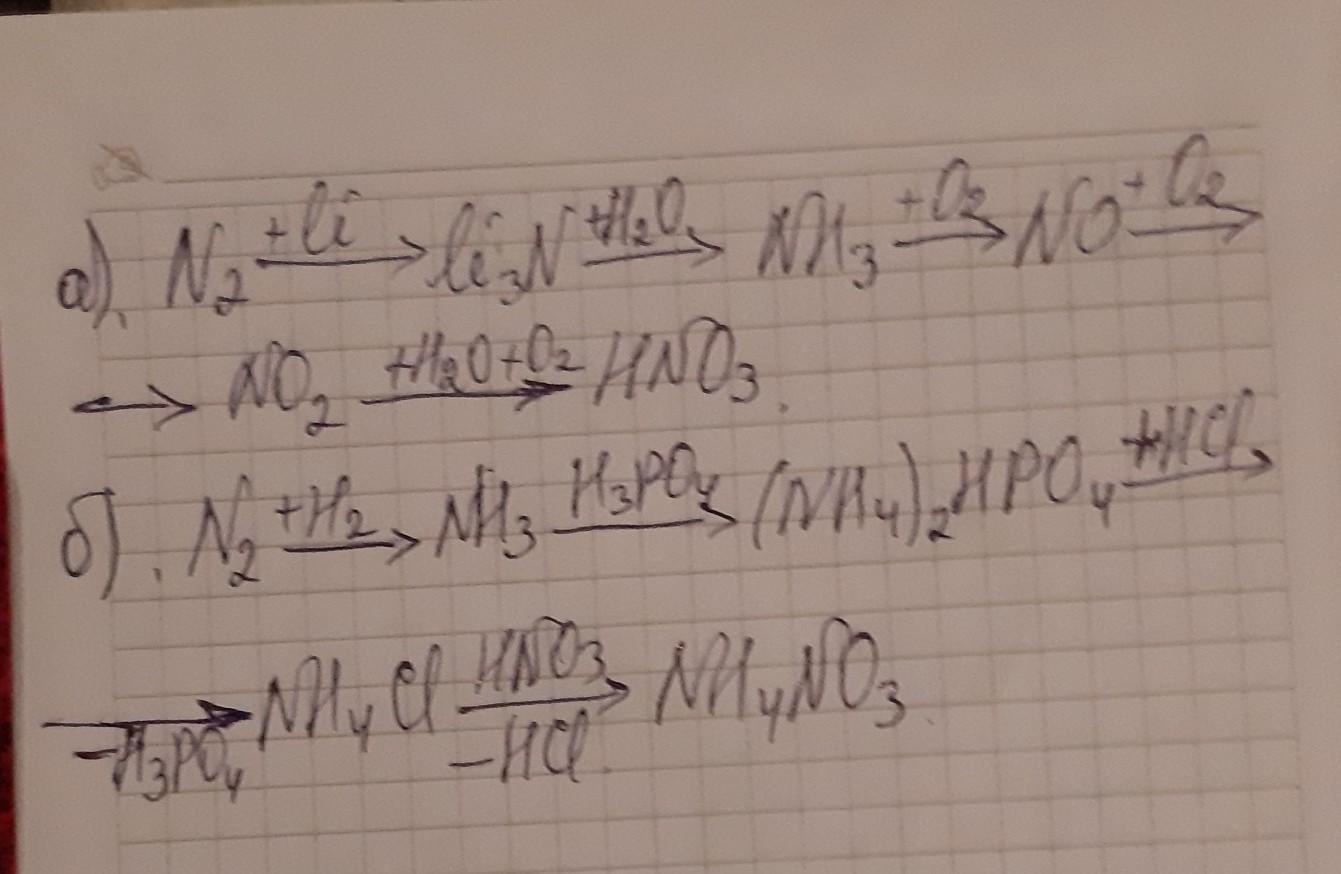 а). N₂ +Li → Li₃N +H₂O → NH₃ +O₂ → NO +O₂ →
→ NO₂ +H₂O+O₂ → HNO₃.
б). N₂ +H₂ → NH₃ H₃PO₄ → (NH₄)₂HPO₄ +HCl →
→ -H₃PO₄ NH₄Cl HNO₃ → -HCl NH₄NO₃.